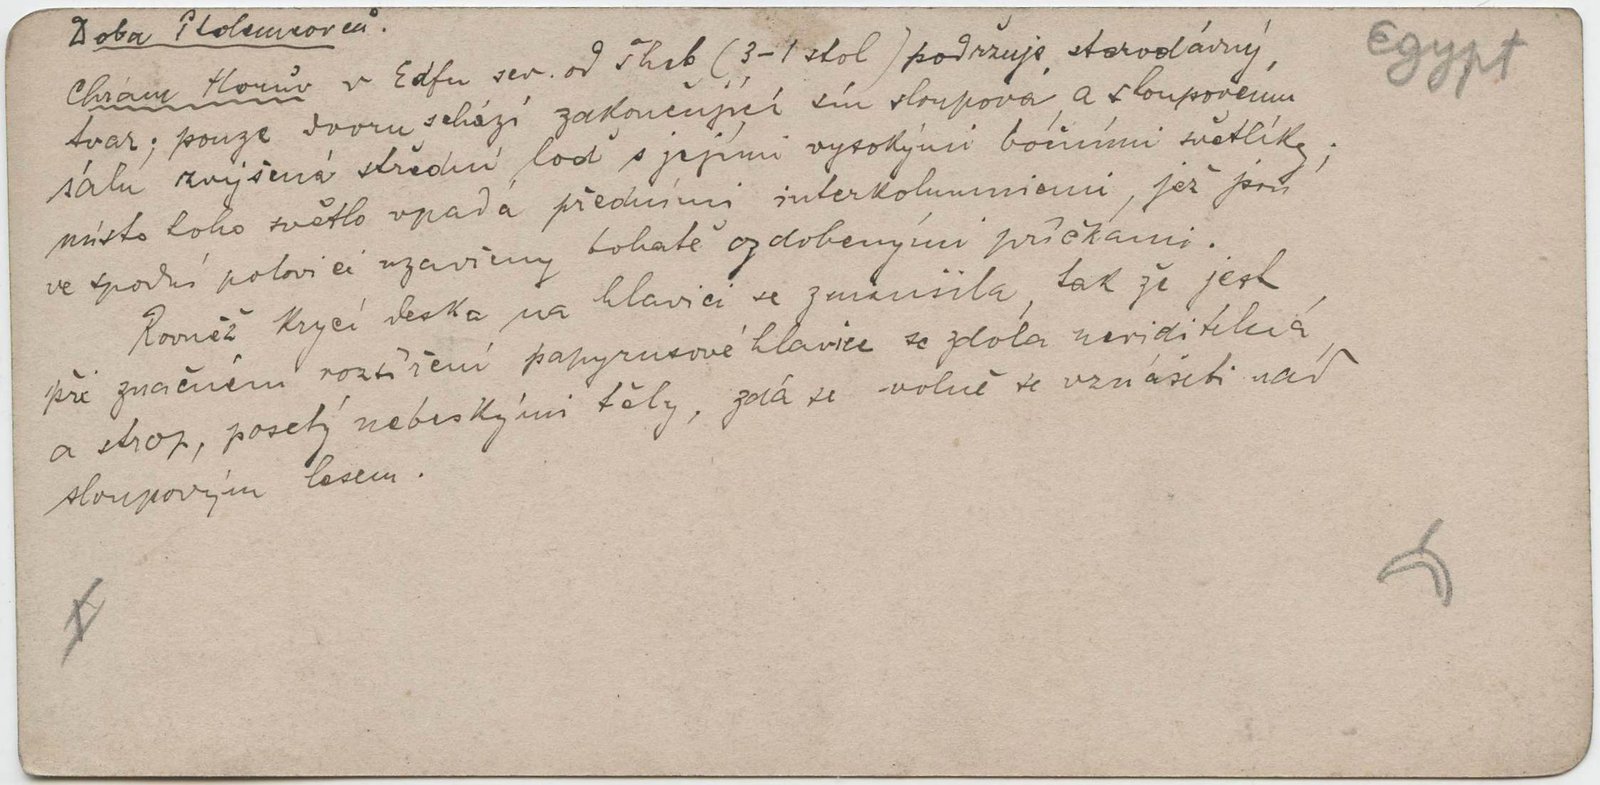 Doba Ptolemeovců.
Egypt
Chrám Horův v Edfu sev. od Theb (3-1 stol) podržuje starodávný
tvar; pouze dvoru schází zakončující síň sloupová a sloupovému
sálu zvýšená střední loď s jejími vysokými bočními světlíky;
místo toho světlo vpadá předními interkolumniemi, jež jsou
ve spodní polovici uzavřeny bohatě ozdobenými příčkami.
Rovněž krycí deska na hlavici se zmenšila, tak že jest
při značném rozšíření papyrusové hlavice se zdola neviditelná
a strop, posetý nebeskými těly, zdá se volně se vznášeti nad
sloupovým lesem.